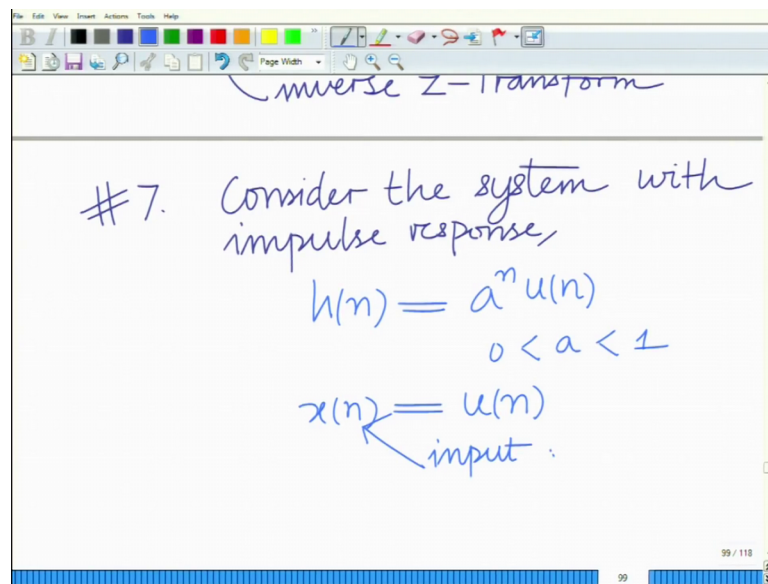 File Edit View Insert Actions Tools Help
B I
Page Width
inverse Z-Transform
#7. Consider the system with
impulse response,
h(n) = aⁿ u(n)
0 < a < 1
x(n) = u(n)
input
99 / 118
99